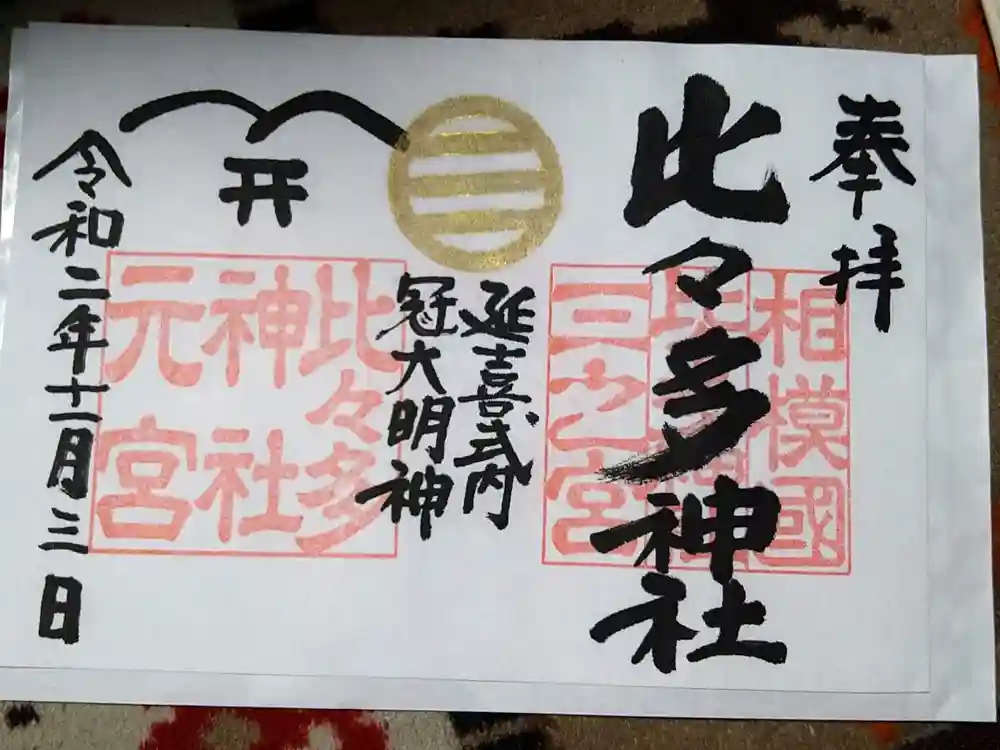 奉拝
相模國
三之宮
比々多神社
延喜式内
冠大明神
比々多
神社
元宮
令和二年十一月三日